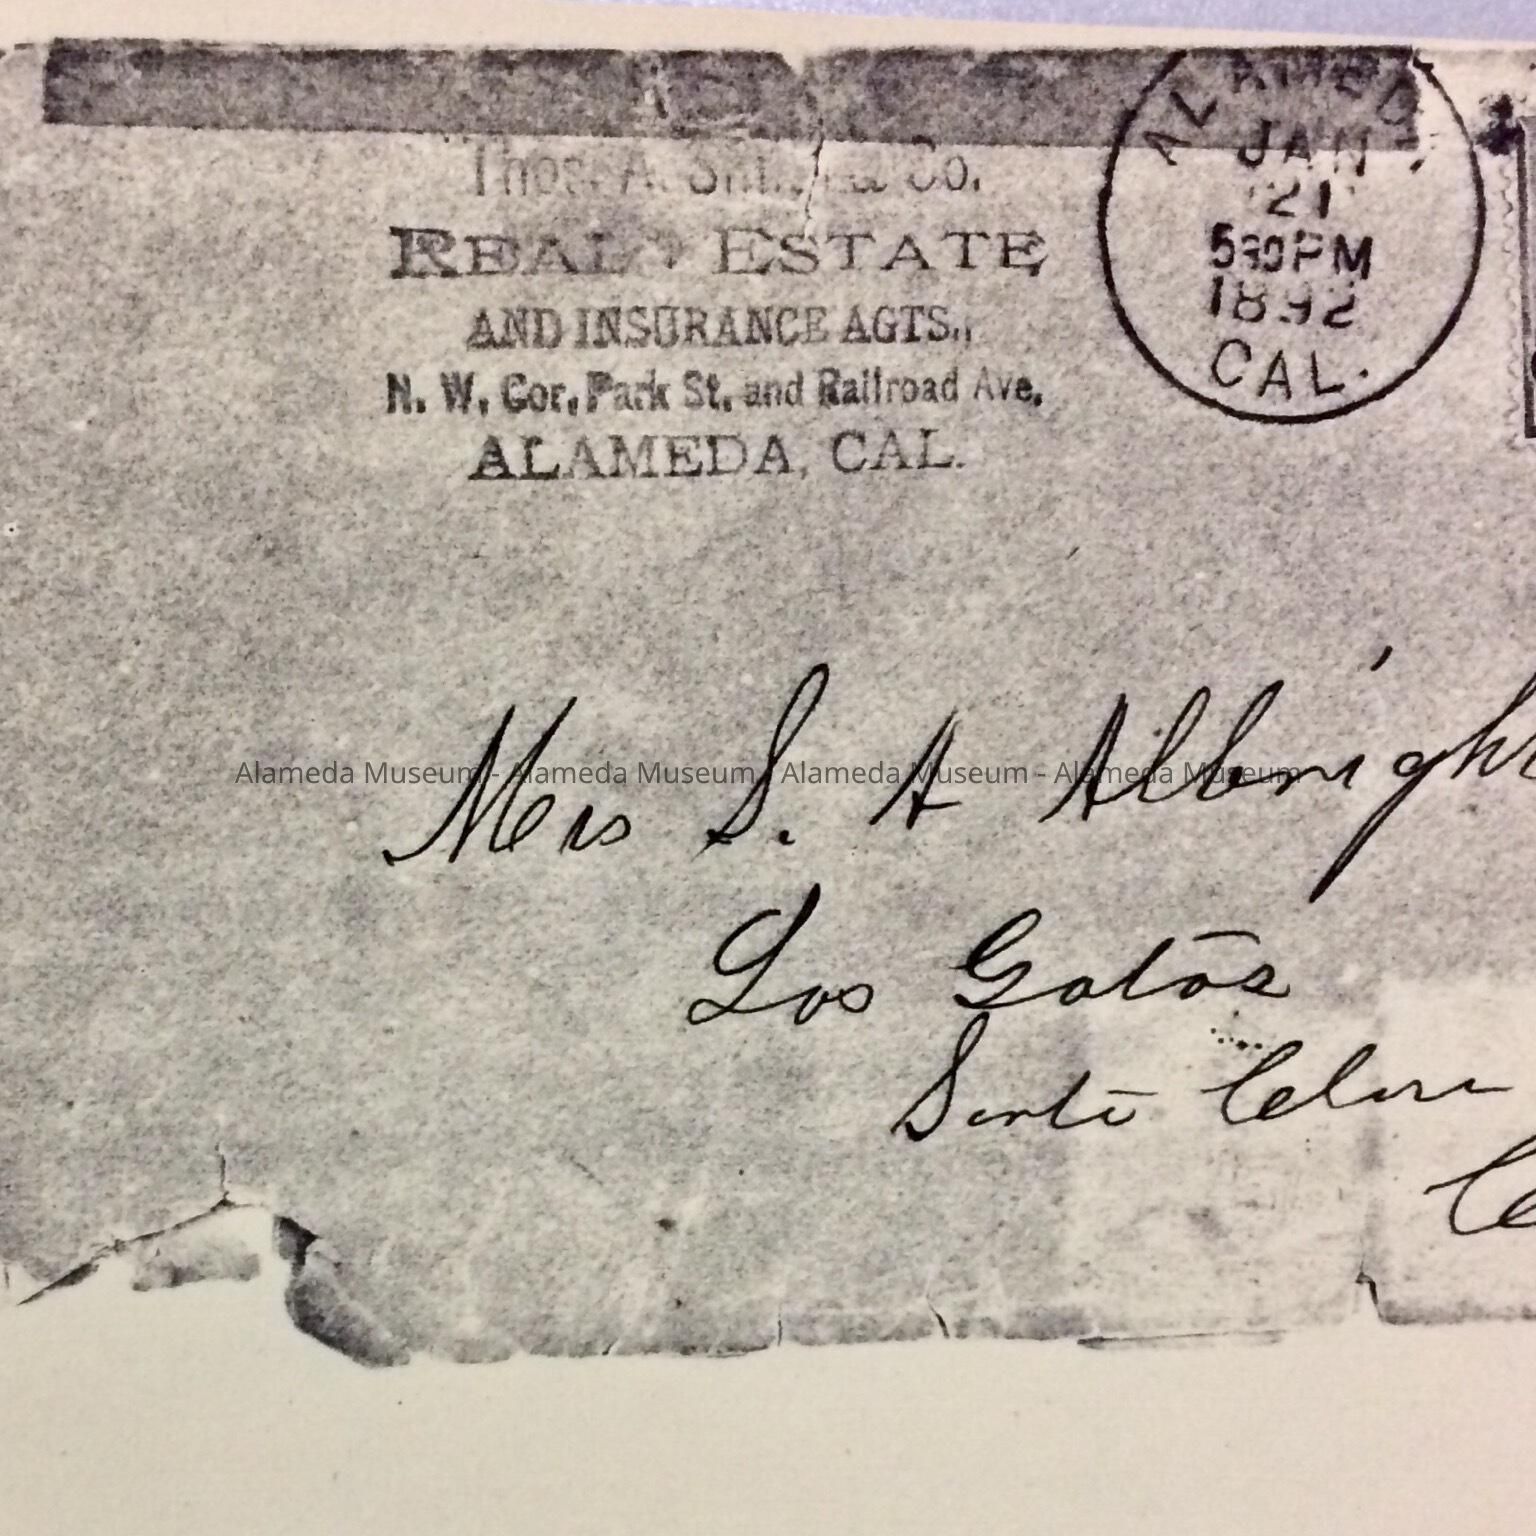 Thos. A. & Co.
REAL ESTATE
AND INSURANCE AGTS.,
N. W. Cor. Park St. and Railroad Ave.
ALAMEDA, CAL.
ALAMEDA
JAN
21
530PM
1892
CAL.
Mrs S. A Albright
Alameda Museum - Alameda Museum - Alameda Museum - Alameda Museum
Los Gatos
Santa Clara